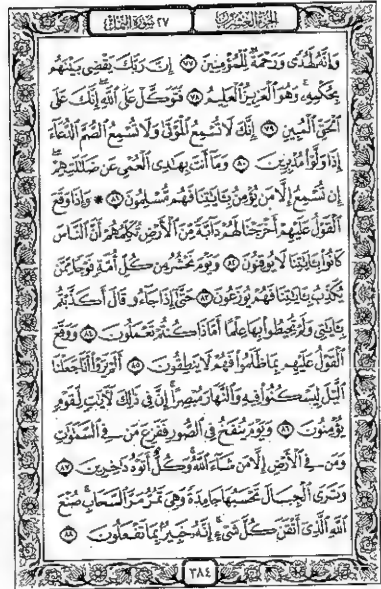 الجزء العشرون ٢٧ سورة النمل
وَإِنَّهُۥ لَهُدًى وَرَحْمَةٌ لِّلْمُؤْمِنِينَ ٧٧ إِنَّ رَبَّكَ يَقْضِى بَيْنَهُم
بِحُكْمِهِۦ وَهُوَ ٱلْعَزِيزُ ٱلْعَلِيمُ ٧٨ فَتَوَكَّلْ عَلَى ٱللَّهِ إِنَّكَ عَلَى
ٱلْحَقِّ ٱلْمُبِينِ ٧٩ إِنَّكَ لَا تُسْمِعُ ٱلْمَوْتَىٰ وَلَا تُسْمِعُ ٱلصُّمَّ ٱلدُّعَآءَ
إِذَا وَلَّوْا۟ مُدْبِرِينَ ٨٠ وَمَآ أَنتَ بِهَٰدِى ٱلْعُمْىِ عَن ضَلَٰلَتِهِمْ
إِن تُسْمِعُ إِلَّا مَن يُؤْمِنُ بِـَٔايَٰتِنَا فَهُم مُّسْلِمُونَ ٨١ * وَإِذَا وَقَعَ
ٱلْقَوْلُ عَلَيْهِمْ أَخْرَجْنَا لَهُمْ دَآبَّةً مِّنَ ٱلْأَرْضِ تُكَلِّمُهُمْ أَنَّ ٱلنَّاسَ
كَانُوا۟ بِـَٔايَٰتِنَا لَا يُوقِنُونَ ٨٢ وَيَوْمَ نَحْشُرُ مِن كُلِّ أُمَّةٍ فَوْجًا مِّمَّن
يُكَذِّبُ بِـَٔايَٰتِنَا فَهُمْ يُوزَعُونَ ٨٣ حَتَّىٰٓ إِذَا جَآءُو قَالَ أَكَذَّبْتُم
بِـَٔايَٰتِى وَلَمْ تُحِيطُوا۟ بِهَا عِلْمًا أَمَّاذَا كُنتُمْ تَعْمَلُونَ ٨٤ وَوَقَعَ
ٱلْقَوْلُ عَلَيْهِم بِمَا ظَلَمُوا۟ فَهُمْ لَا يَنطِقُونَ ٨٥ أَلَمْ يَرَوْا۟ أَنَّا جَعَلْنَا
ٱلَّيْلَ لِيَسْكُنُوا۟ فِيهِ وَٱلنَّهَارَ مُبْصِرًا إِنَّ فِى ذَٰلِكَ لَـَٔايَٰتٍ لِّقَوْمٍ
يُؤْمِنُونَ ٨٦ وَيَوْمَ يُنفَخُ فِى ٱلصُّورِ فَفَزِعَ مَن فِى ٱلسَّمَٰوَٰتِ
وَمَن فِى ٱلْأَرْضِ إِلَّا مَن شَآءَ ٱللَّهُ وَكُلٌّ أَتَوْهُ دَٰخِرِينَ ٨٧
وَتَرَى ٱلْجِبَالَ تَحْسَبُهَا جَامِدَةً وَهِىَ تَمُرُّ مَرَّ ٱلسَّحَابِ صُنْعَ
ٱللَّهِ ٱلَّذِىٓ أَتْقَنَ كُلَّ شَىْءٍ إِنَّهُۥ خَبِيرٌۢ بِمَا تَفْعَلُونَ ٨٨
٣٨٤